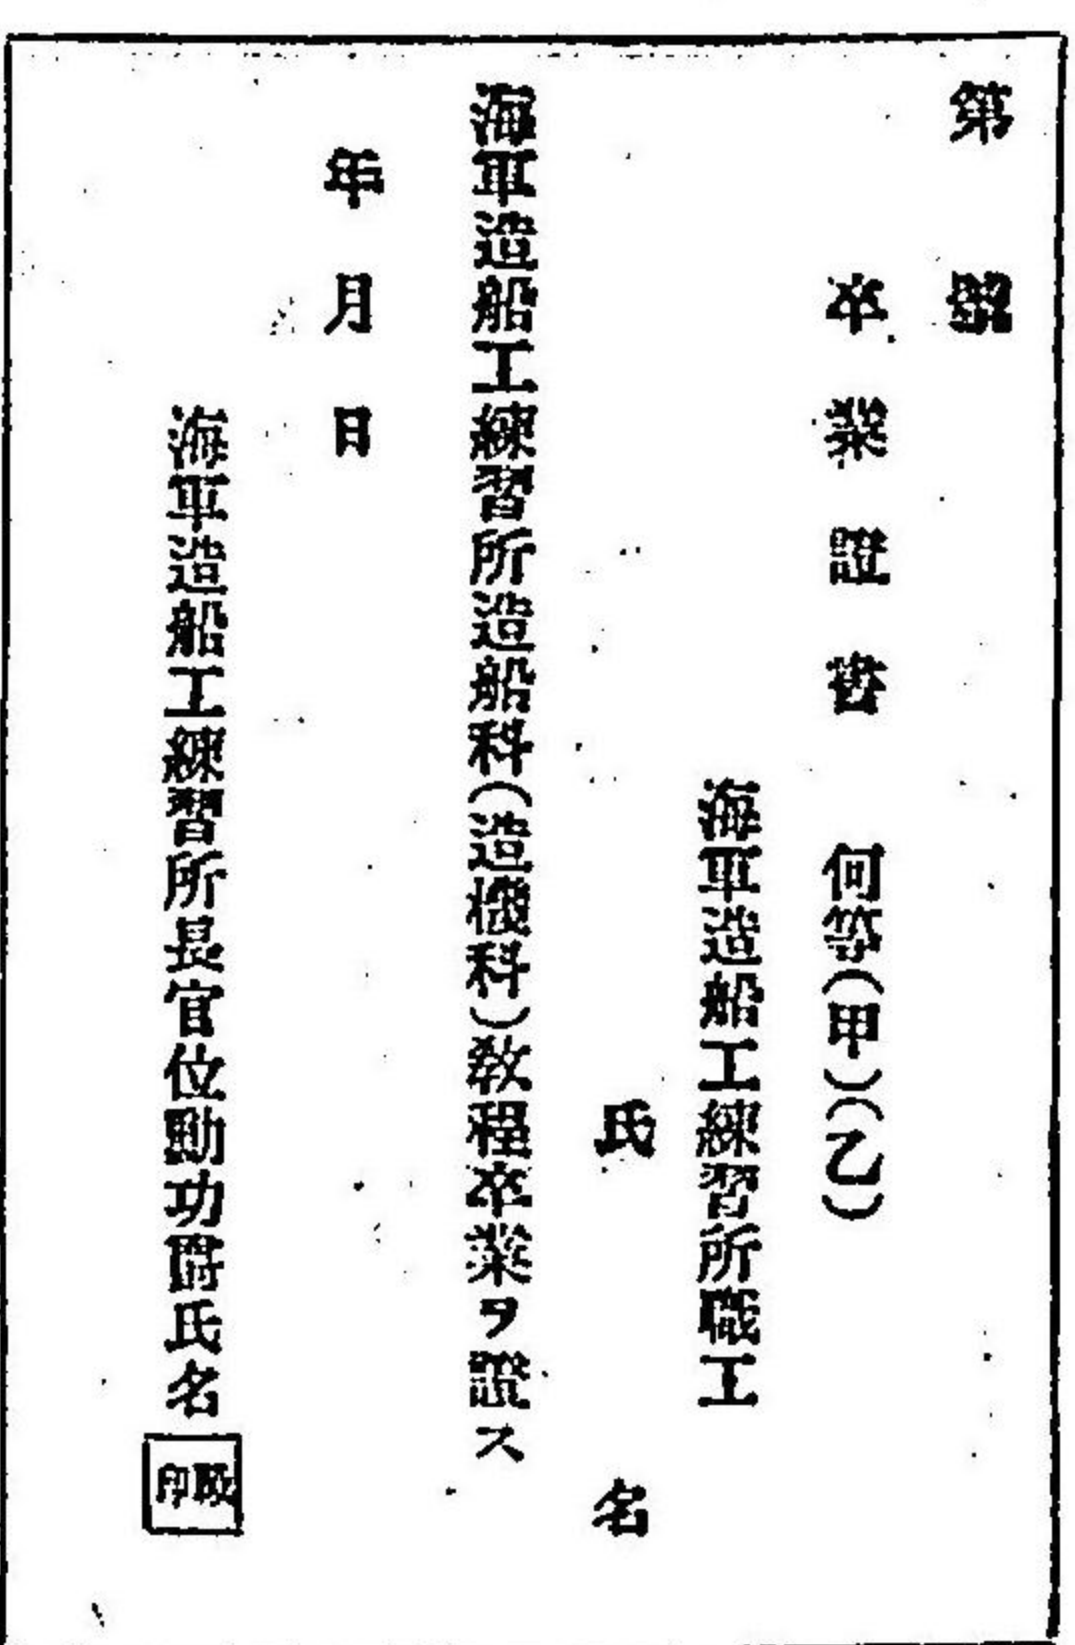 第　　號
卒業證書　何等(甲)(乙)
海軍造船工練習所職工
氏　　名
海軍造船工練習所造船科(造機科)敎程卒業ヲ證ス
年　月　日
海軍造船工練習所長官位勳功爵氏名
印